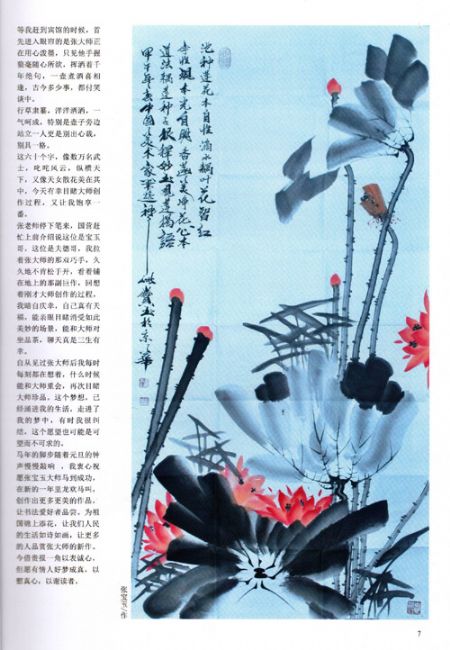 等我赶到宾馆的时候,首
先进入眼帘的是张大师正
在用心泼墨,只见他手握
狼毫随心所欲,挥洒着千
年绝句,一壶煮酒喜相
逢,古今多少事,都付笑
谈中。
行草隶篆,洋洋洒洒,一
气呵成,特别是壶子旁边
站立一人更是别出心裁,
别具一格。
这六十个字,像数万名武
士,叱咤风云,纵横天
下,又像天女散花美在其
中,今天有幸目睹大师创
作过程,又让我饱享一
番。
张老师停下笔来,国营赶
忙上前介绍说这位是宝玉
哥,这位是夫德哥,我拉
着张大师的那双巧手,久
久地不肯松手开,看着铺
在地上的那副巨作,回想
着刚才大师创作的过程,
我暗自庆幸,自己真有天
福,能亲眼目睹消受如此
美妙的场景,能和大师对
坐品茶,聊天真是三生有
幸。
自从见过张大师后我每时
每刻都在想着,什么时候
能和大师重会,再次目睹
大师珍品,这个梦想,已
经涌进我的生活,走进了
我的梦中,有时我很纠
结,这个愿望也可能是可
望而不可求的。
马年的脚步随着元旦的钟
声慢慢敲响,我衷心祝
愿张宝玉大师马到成功,
在新的一年里龙欢马叫,
创作出更多更美的作品,
让书法爱好者品尝,为祖
国锦上添花,让我们人民
的生活如诗如画,让更多
的人品赏张大师的新作。
今借贵报一角以表诚心,
但愿有情人好梦成真,以
慰真心,以谢读者。
池种莲花本自性滴水穿叶花留红
张宝玉/作
7